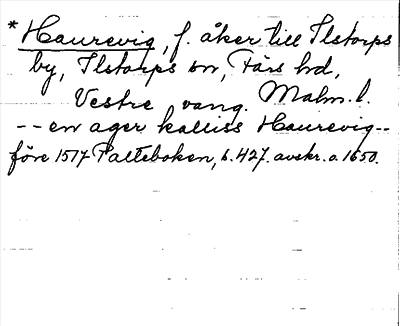 * Haurevig, f. åker till Ilstorps
by, Ilstorps sn, Färs hd,
Vestre vang. Malm. l.
-- en ager kalliss Haurevig --
före 1517 Palteboken, s. 427. avskr. o. 1650.